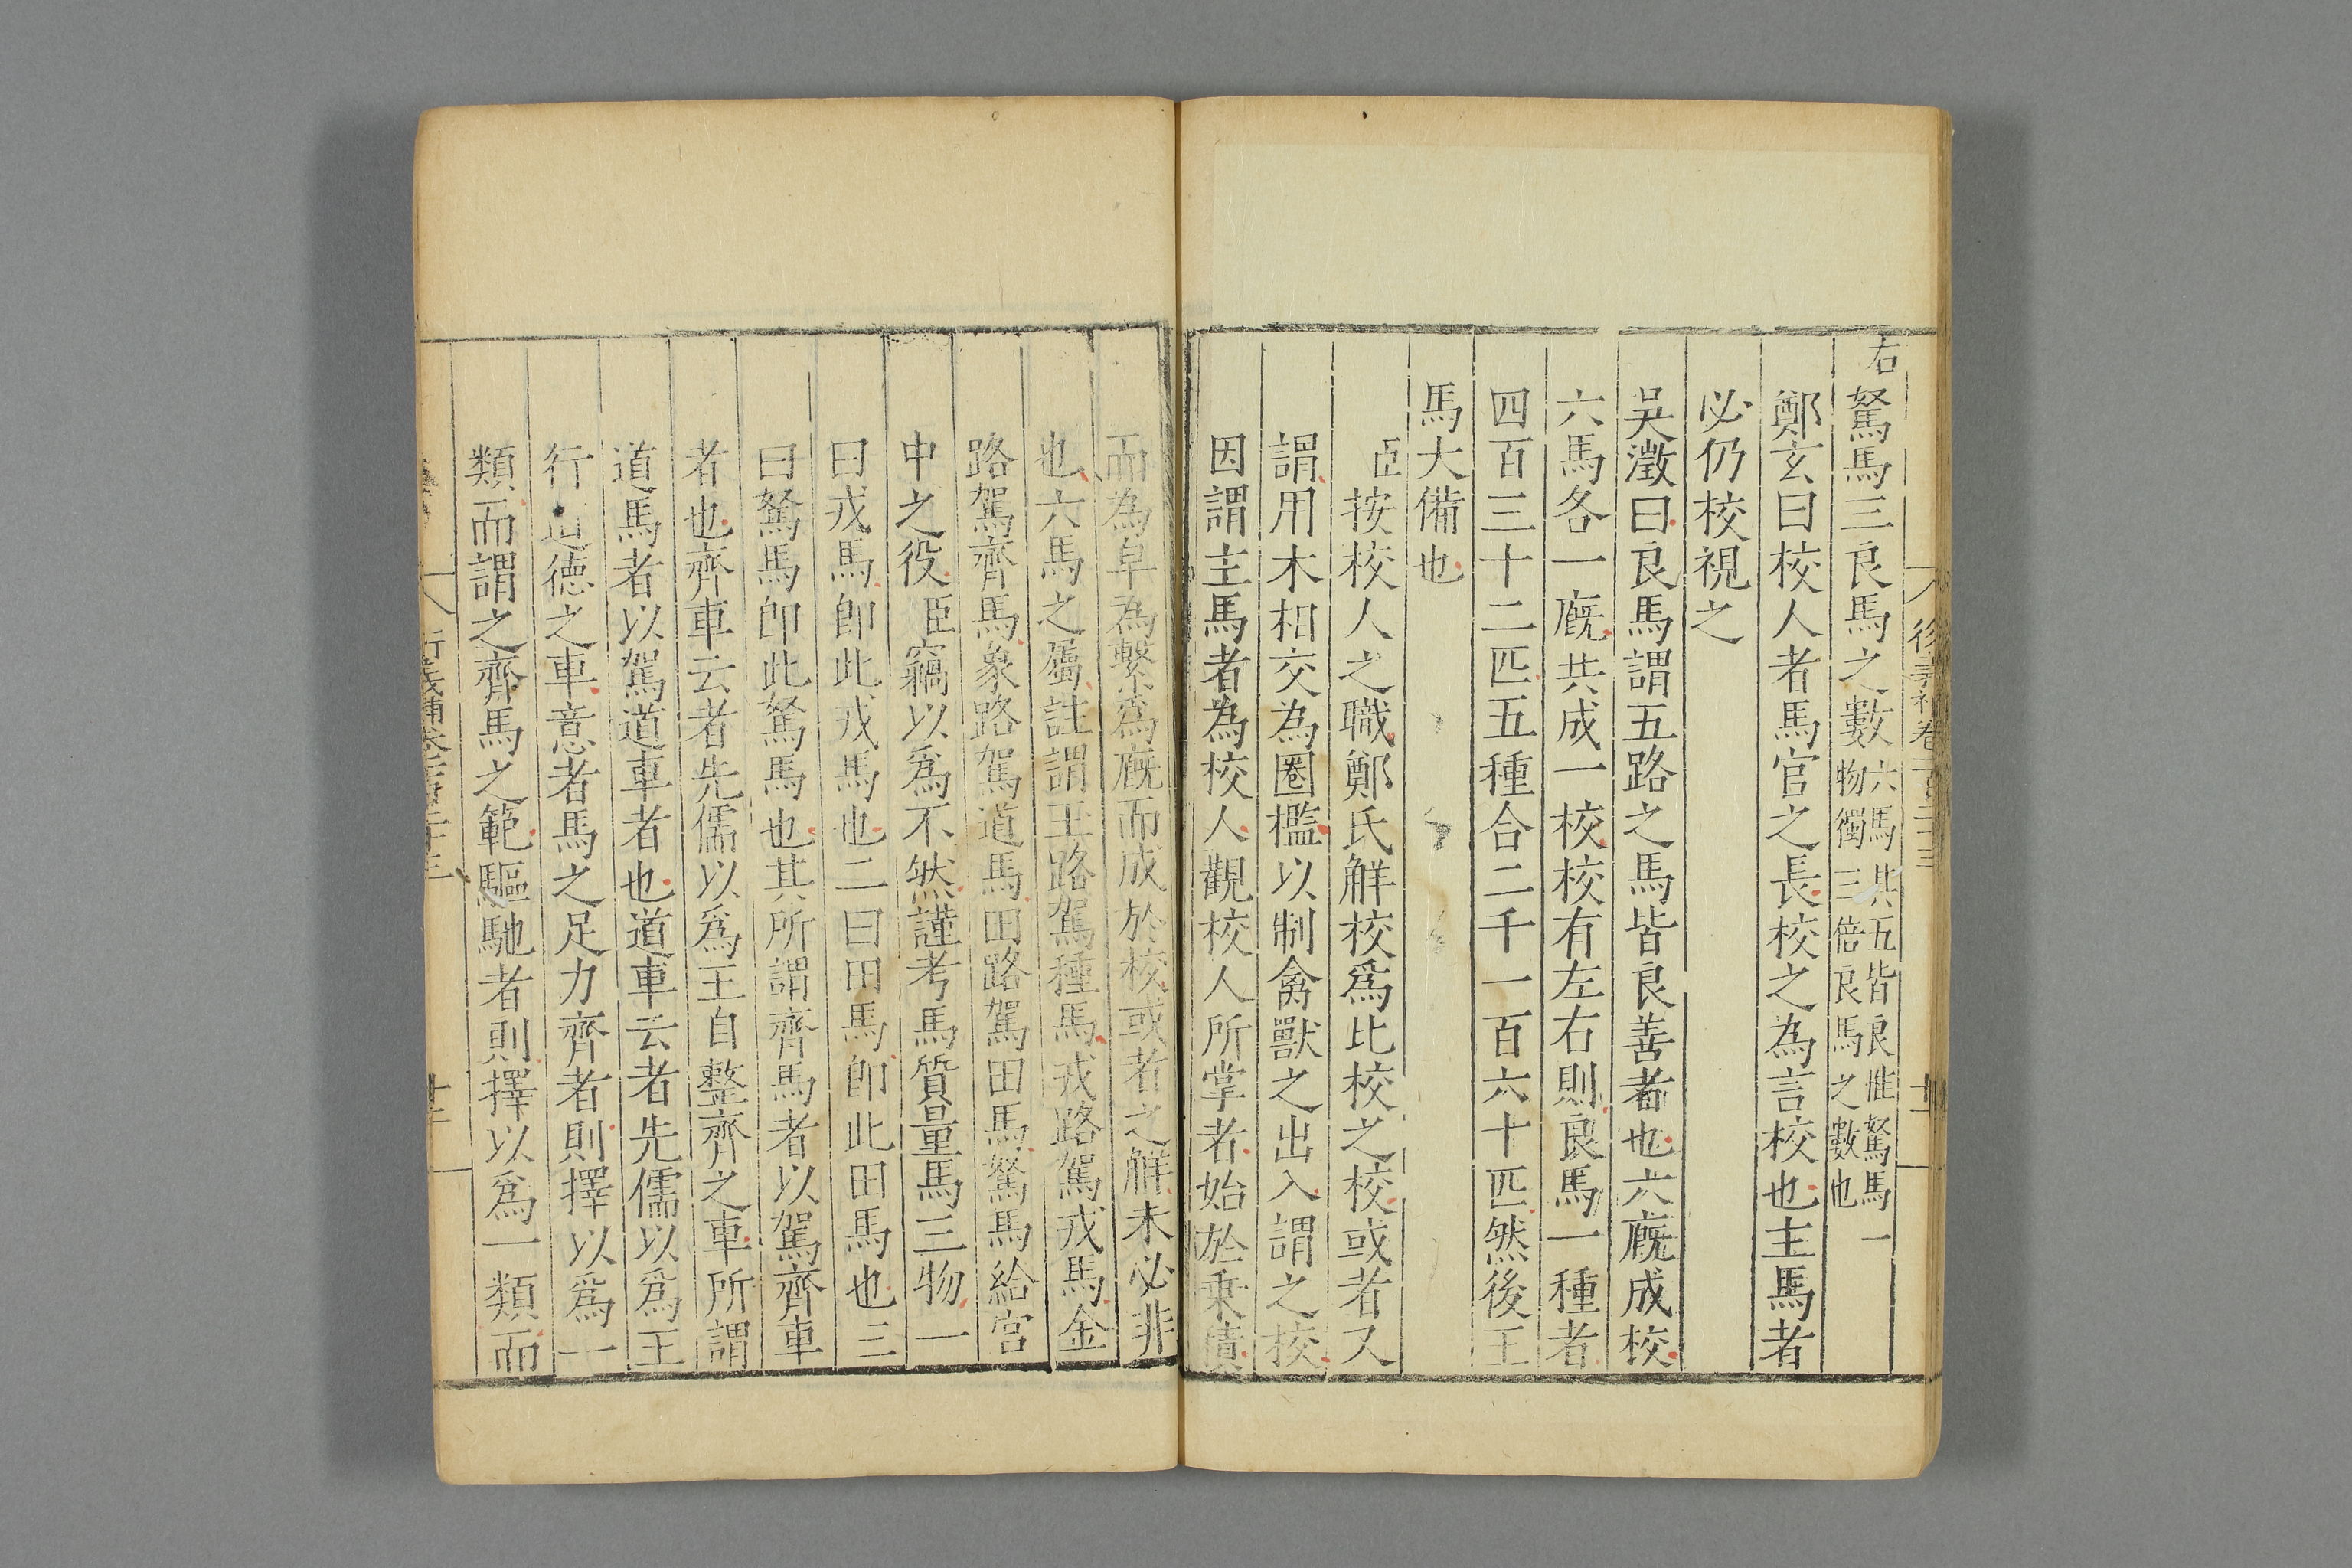 右
駑馬三良馬之數六馬其五皆良惟駑馬一物獨三倍良馬之數也
鄭玄曰校人者馬官之長校之為言校也主馬者
必仍校視之
吳澂曰良馬謂五路之馬皆良善者也六廐成校
六馬各一廐共成一校校有左右則良馬一種者
四百三十二匹五種合二千一百六十匹然後王
馬大備也
臣按校人之職鄭氏解校爲比校之校或者又
謂用木相交為圈檻以制禽獸之出入謂之校
因謂主馬者為校人觀校人所掌者始於乗
而為阜為繫爲廐而成於校或者之解未必非
也六馬之屬註謂玉路駕種馬戎路駕戎馬金
路駕齊馬象路駕道馬田路駕田馬駑馬給宮
中之役臣竊以爲不然謹考馬質量馬三物一
曰戎馬卽此戎馬也二曰田馬卽此田馬也三
曰駑馬卽此駑馬也其所謂齊馬者以駕齊車
者也齊車云者先儒以爲王自整齊之車所謂
道馬者以駕道車者也道車云者先儒以爲王
行道德之車意者馬之足力齊者則擇以爲一
類而謂之齊馬之範驅馳者則擇以爲一類而